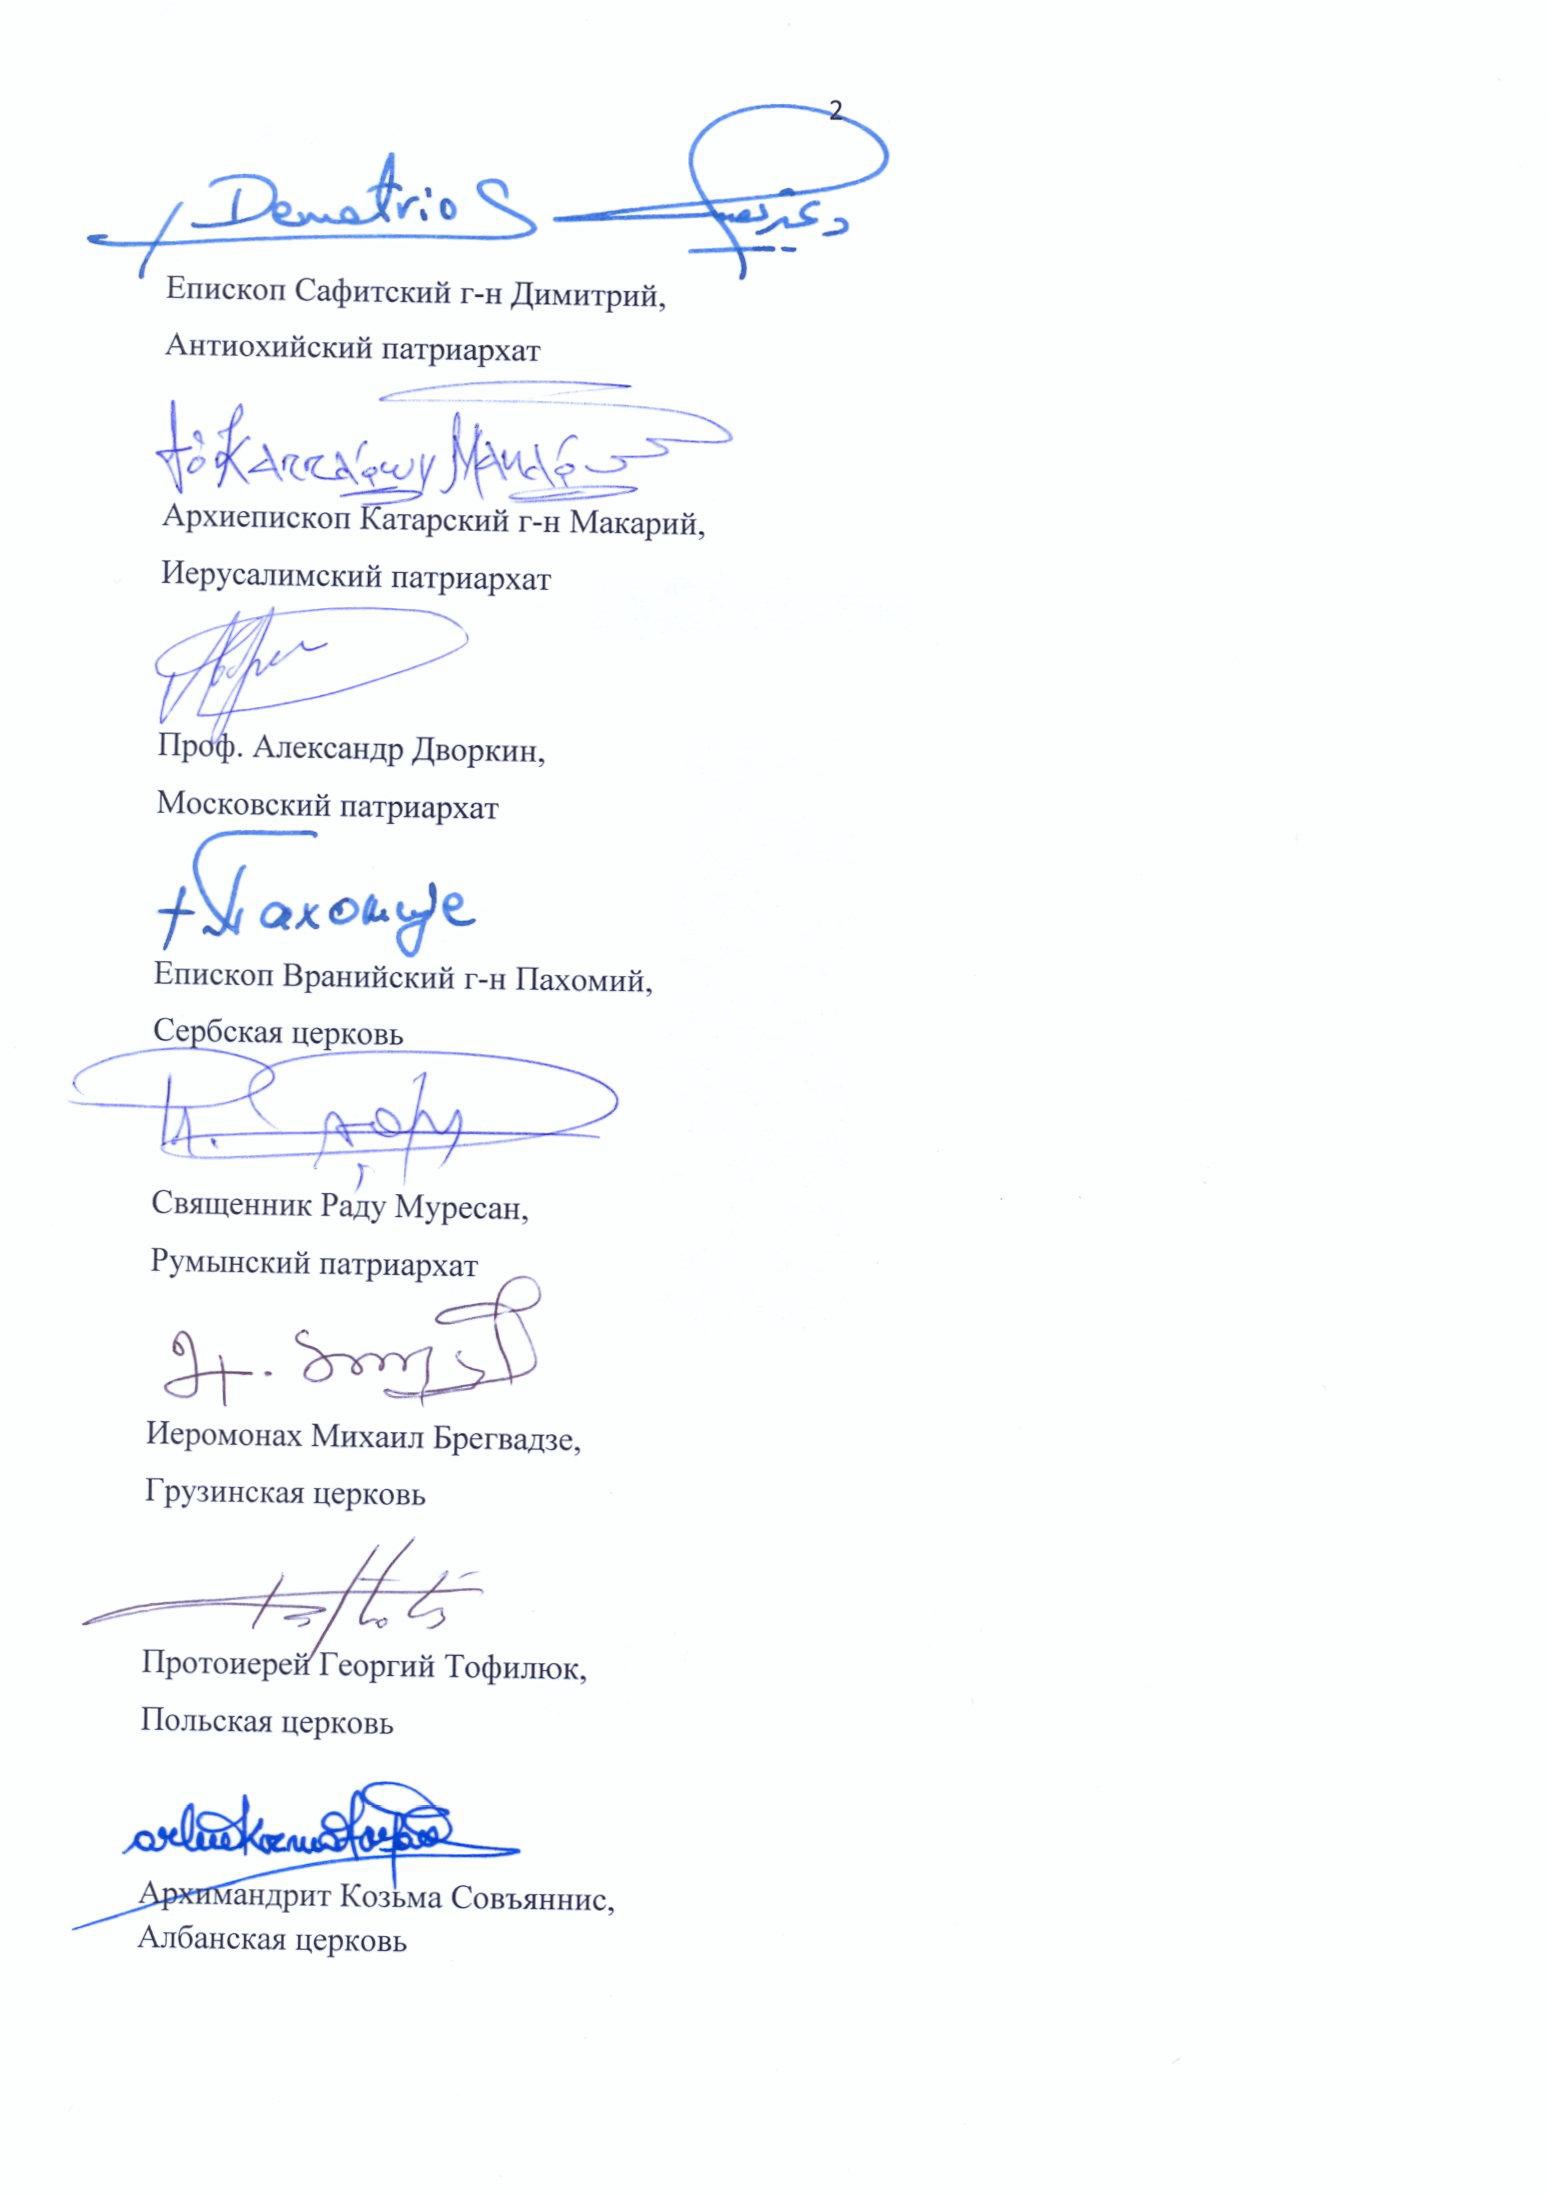 2
Demetrios دمتريوس
Епископ Сафитский г-н Димитрий,
Антиохийский патриархат
Архиепископ Катарский г-н Макарий,
Иерусалимский патриархат
Проф. Александр Дворкин,
Московский патриархат
+ Пахомије
Епископ Вранийский г-н Пахомий,
Сербская церковь
Священник Раду Муресан,
Румынский патриархат
Иеромонах Михаил Брегвадзе,
Грузинская церковь
Протоиерей Георгий Тофилюк,
Польская церковь
Архимандрит Козьма Совъяннис,
Албанская церковь